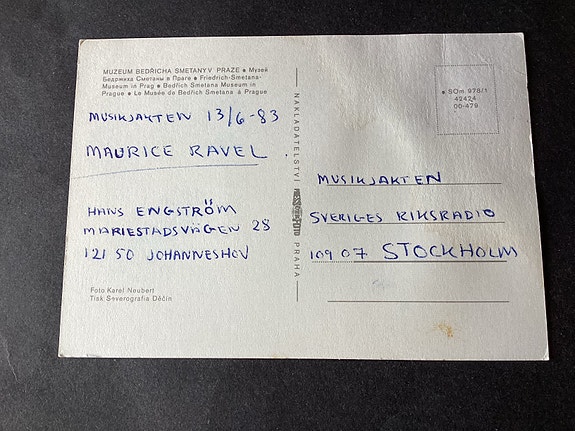 MUZEUM BEDŘICHA SMETANY V PRAZE ● Музей
Бедржиха Сметаны в Праге ● Friedrich-Smetana-
Museum in Prag ● Bedřich Smetana Museum in
Prague ● Le Musée de Bedřich Smetana à Prague
MUSIKJAKTEN 13/6-83
MAURICE RAVEL.
HANS ENGSTRÖM
MARIESTADSVÄGEN 28
121 50 JOHANNESHOV
Foto Karel Neubert
Tisk Severografia Děčín
NAKLADATELSTVÍ
PRAHA
● SOm 978/1
42424
00-479
MUSIKJAKTEN
SVERIGES RIKSRADIO
109 07 STOCKHOLM